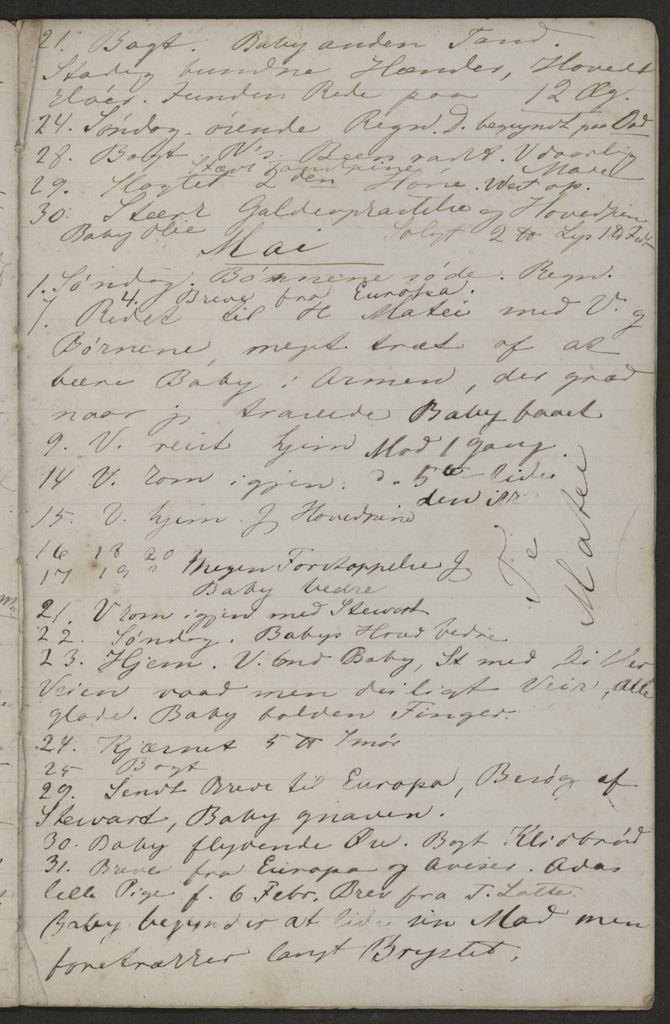 21. Bagt. Baby anden Tand.
Stadig bundne Hænder, Hovedet
Funden Rede paa 12 Æg.
24. Søndag. øsende Regn. D. begyndt paa
28. Bagt. V's Been vardt.
Stærk Tandpine
29. Slagtet 2 den Høne. Vast op.
30. Stærk Galdeopkastelse og Hovedpine
Baby Olie Solgt 2 ℔ Lys 1 ℔ Fedt
Mai
1. Søndag. Børnene søde. Regn.
4. Breve fra Europa.
7. Redet til H Matei med V. og
Børnene, meget træt af at
bære Baby i Armen, der græd
naar jeg travede Baby faaet
9. V. reist hjem Mad 1 gang.
14 V. kom igjen. d. 5te
15. V. hjem. Jeg Hovedpine
Te Matei
16 18 20
17 19 Megen Forstoppelse Jeg
Baby bedre
21. V kom igjen med Stewart
22. Søndag. Babys Hoved bedre
23. Hjem. V. Baby, St med Di
Veien vaad men deiligt Veir, alle
glade. Baby bolden Finger.
24. Kjærnet 5 ℔ Smör
25 Bagt
29. Sendt Breve til Europa, Besög af
Stewart, Baby gnaven.
30. Baby flyvende Øre. Bagt Klidbröd
31. Breve fra Europa og Aviser. Adas
lille Pige f. 6 Febr. Brev fra T. Lotte
Baby begynder at lide sin Mad men
foretrækker langt Brystet.